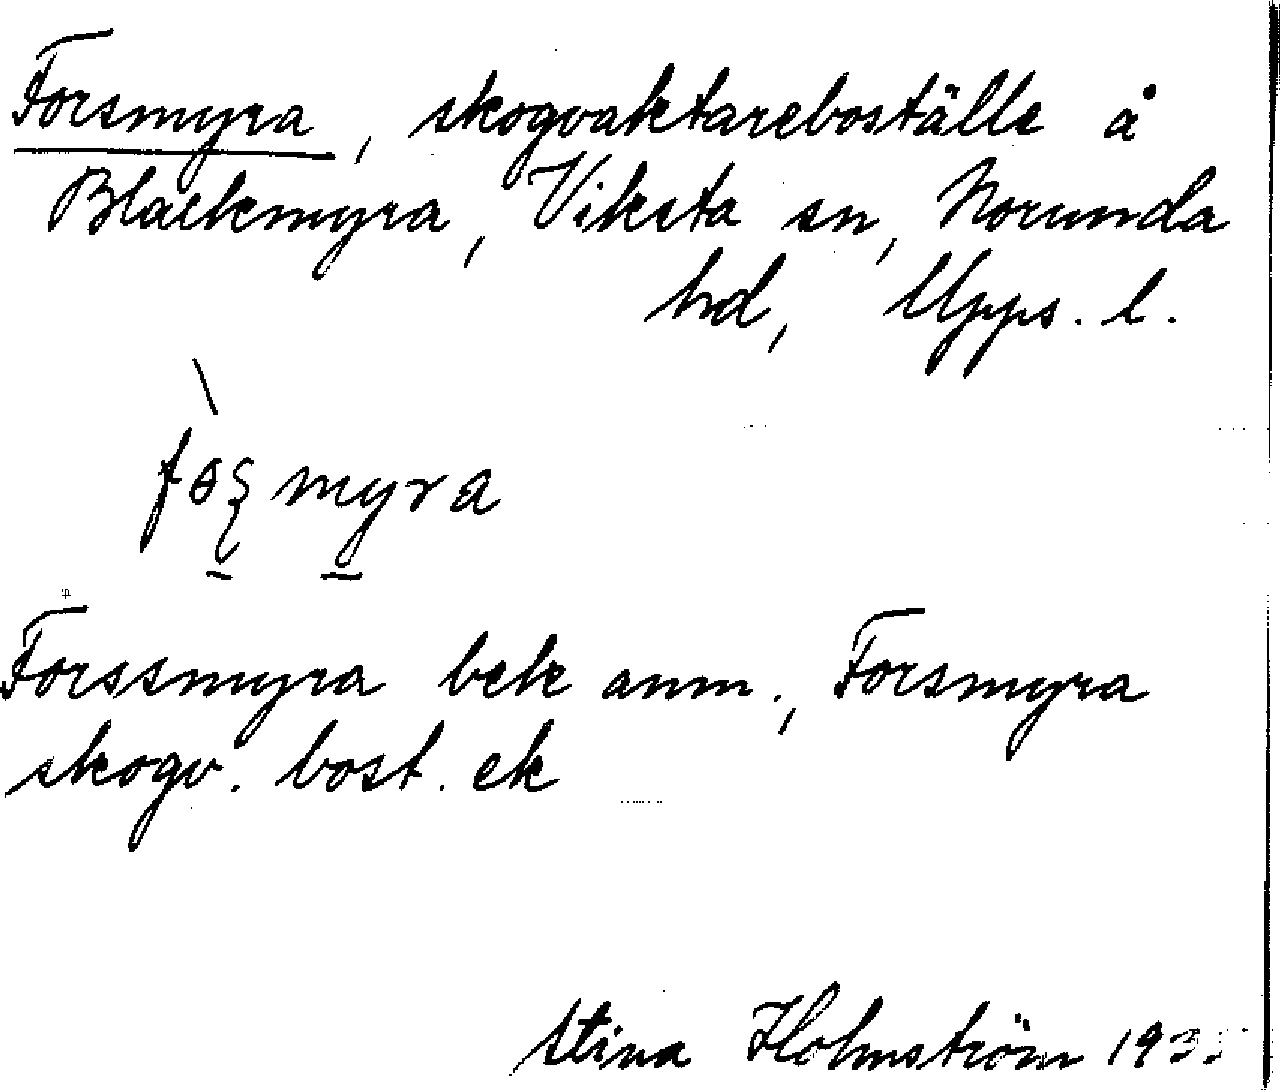 Forsmyra, skogvaktareboställe å
Blackmyra, Viksta sn, Norunda
hd, Upps. l.
Forssmyra bek anm., Forsmyra
skogv. bost. ek
Stina Holmström